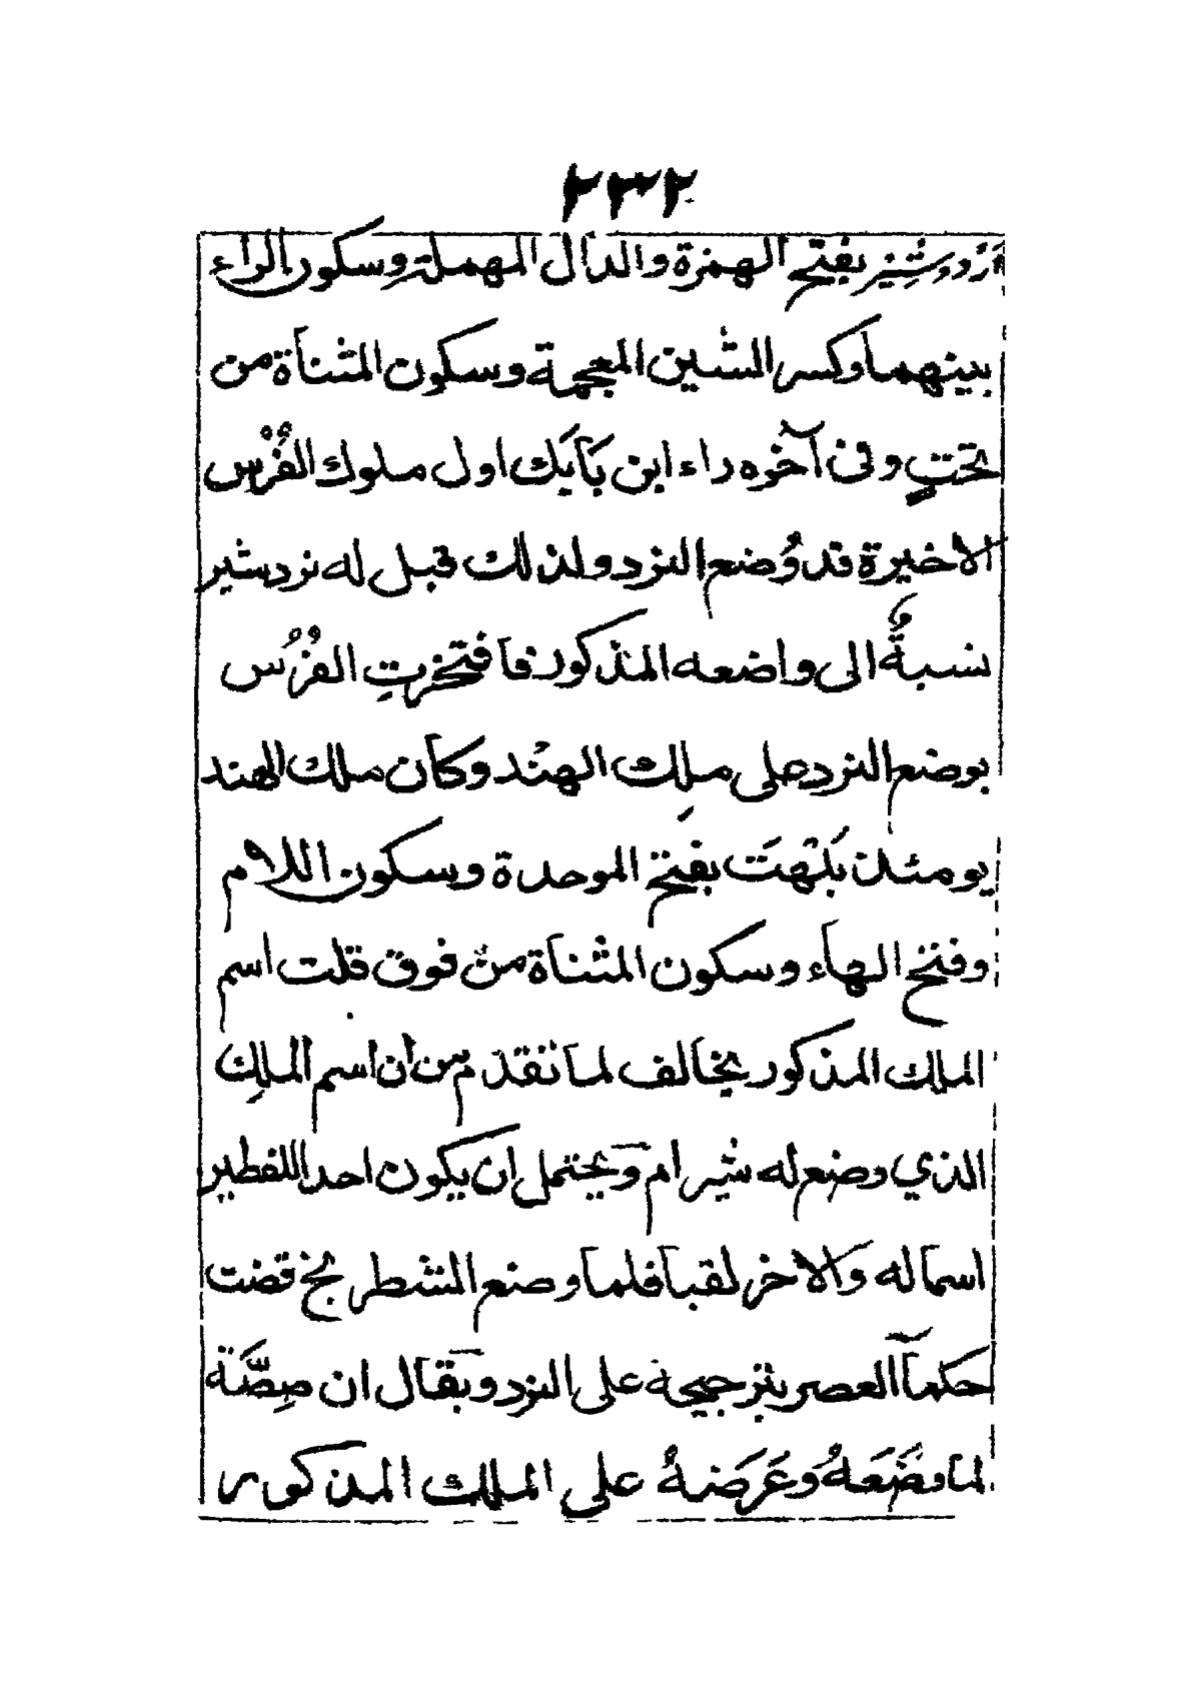 ٢٣٢
أَرْدَشِير بفتح الهمزة والدال المهملة وسكون الراء
بينهما وكسر الشين المعجمة وسكون المثناة من
تحتٍ وفى آخره راء ابن بَابَك اول ملوك الفُرْس
الاخيرة قد وُضع النرد ولذلك قيل له نردشير
نسبةٌ الى واضعه المذكور فافتخرتِ الفُرْس
بوضع النرد على ملِك الهنْد وكان ملك الهند
يومئذ بَلْهَت بفتح الموحدة وسكون اللام
وفتح الهاء وسكون المثناة من فوق قلت اسم
الملك المذكور يخالف لما تقدم من ان اسم الملِك
الذي وضع له شيرام ويحتمل ان يكون احد اللفظين
اسما له والاخر لقبا فلما وضع الشطرنج قضت
حكمآ العصر بترجيحه على النرد ويقال ان صِصَّة
لما وضَعَهُ وعَرَضهُ على الملك المذكور